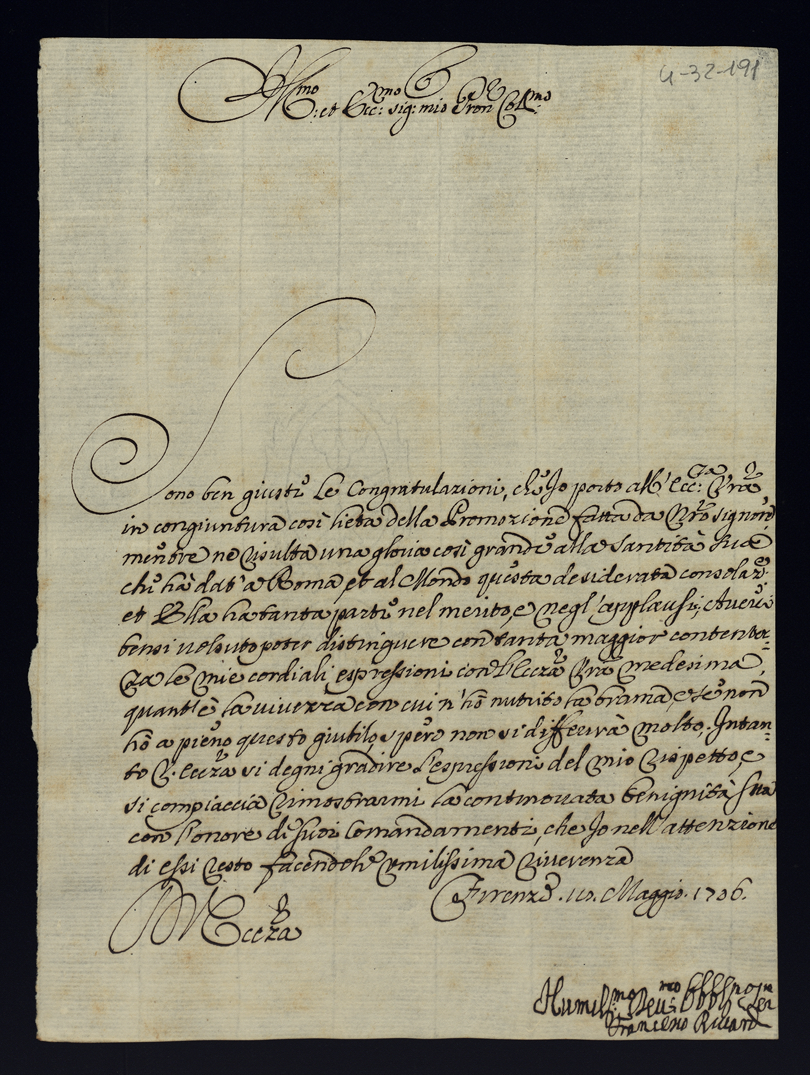 4-32-191
Ill:mo et Ecc:mo sig: mio Pron Col:mo
Sono ben giuste le Congratulazioni, che Io porto all' Ecc:za Vra
in congiuntura così lieta della Promozione fatta da Nro signore,
mentre ne risulta una gloria così grande alla Santità Sua
che hà dat' a Roma et al Mondo questa desiderata consolaz:
et Ella ha tanta parte nel merito, e negl' applausi; Averei
bensi voluto poter distinguere con tanta maggior contentez-
za le mie cordiali espressioni con l'Ecc:za Vra medesima,
quant'è la vivezza con cui n'hò nutrito la brama, e se non
hò a pieno questo giubilo, spero non si differirà molto. Intan-
to V. Ecc:za si degni gradire l'espressioni del mio rispetto, e
si compiaccia rimostrarmi la continovata benignità sua
con l'onore di suoi Comandamenti, che Io nell' attenzione
di essi resto facendole umilissima riverenza
Firenze . Maggio . 1706.
V Eccza
Humil:mo Dev:mo
Francesco Riccardi